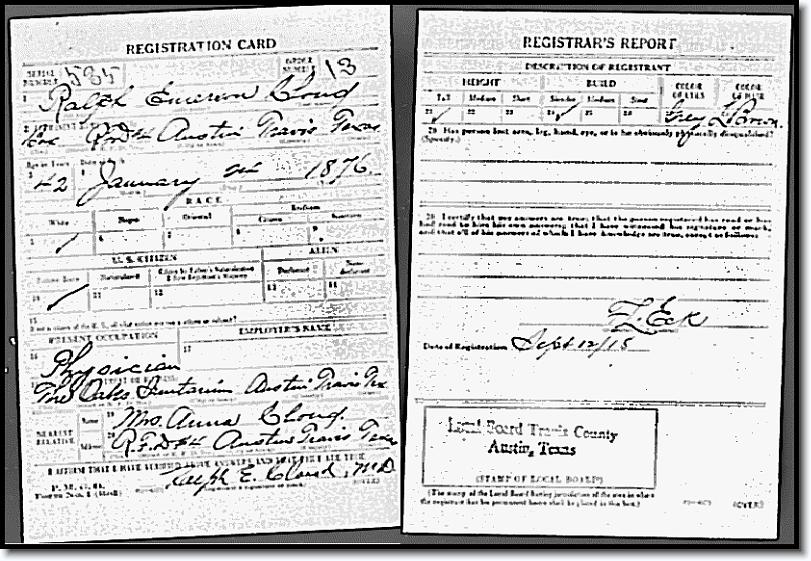 REGISTRATION CARD
SERIAL NUMBER 585 ORDER NUMBER 13
1 Ralph Emerson Cloud
2 Box R.F.D #4 Austin Travis Texas
Age in Years Date of Birth
3 42 4 January 1876
RACE
White Negro Oriental Indian
Citizen Noncitizen
5 / 6 7 8 9
U. S. CITIZEN ALIEN
Native Born Naturalized Citizen by Father's Naturalization Before Registrant's Majority Declarant Non-declarant
10 / 11 12 13 14
15
If not a citizen of the U. S., of what nation are you a citizen or subject?
PRESENT OCCUPATION EMPLOYER'S NAME
16 Physician 17
The Oaks Sanitarium Austin Travis Tex
NEAREST RELATIVE Name 19 Mrs. Anna Cloud
Address 20 R.F.D #4 Austin Travis Texas
I AFFIRM THAT I HAVE VERIFIED ABOVE ANSWERS AND THAT THEY ARE TRUE
Ralph E. Cloud, M.D.
(OVER)
REGISTRAR'S REPORT
DESCRIPTION OF REGISTRANT
HEIGHT BUILD COLOR OF EYES COLOR OF HAIR
Tall Medium Short Slender Medium Stout
21 / 22 23 24 / 25 26 Grey L Brown
29 Has person lost arm, leg, hand, eye, or is he obviously physically disqualified?
(Specify.)
30 I certify that my answers are true; that the person registered has read or has had read to him his own answers; that I have witnessed his signature or mark, and that all of his answers of which I have knowledge are true, except as follows:
Eck
Date of Registration Sept 12/18
Local Board Travis County
Austin, Texas
(STAMP OF LOCAL BOARD)
(The stamp of the Local Board having jurisdiction of the area in which the registrant has his permanent home shall be placed in this box.)
(OVER)